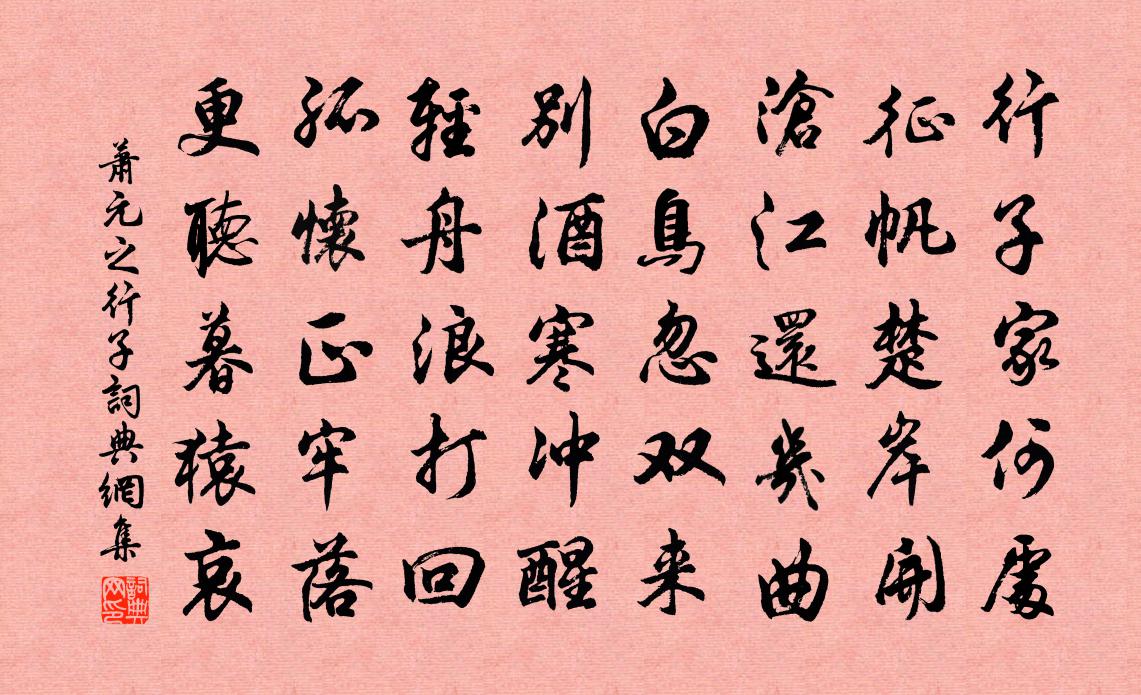 行子家何處
征帆楚岸開
滄江還幾曲
白鳥忽双来
別酒寒冲醒
輕舟浪打回
孤懷正牢落
更聽暮猿哀
蕭元之行子詞典網集
詞典網印